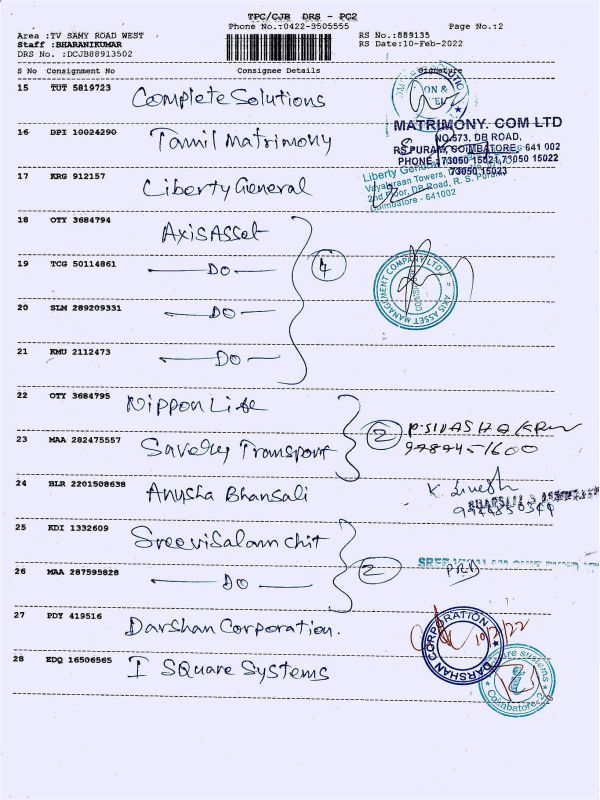 TPC/CJB DRS - PC2
Phone No.:0422-3505555
Page No.:2
Area :TV SAMY ROAD WEST
RS No.:889135
Staff :BHARANIKUMAR
RS Date:10-Feb-2022
DRS No. :DCJB88913502
S No Consignment No Consignee Details Signature
15 TUT 5819723 Complete Solutions
ON &
16 DPI 10024290 Tamil Matrimony
MATRIMONY. COM LTD
NO.573, DB ROAD,
RS PURAM, COIMBATORE, 641 002
PHONE : 73050 15021,73050 15022
73050 15023
17 KRG 912157 Liberty General
Liberty General
Towers,
2nd Floor, DB Road, R. S. Puram
Coimbatore - 641002
18 OTY 3684794 Axis Asset
19 TCG 50114861 DO
4
AXIS ASSET MANAGEMENT COMPANY LTD
20 SLM 289209331 DO
21 KMU 2112473 DO
22 OTY 3684795 Nippon Life
2
23 MAA 282475557 Savery Transport
24 BLR 2201508638 Anusha Bhansali
25 KDI 1332609 Sreevisalam chit
2
26 MAA 287595828 DO
27 PDY 419516 Darshan Corporation.
DARSHAN CORPORATION
28 EDQ 16506565 I Square Systems
Coimbatore-2